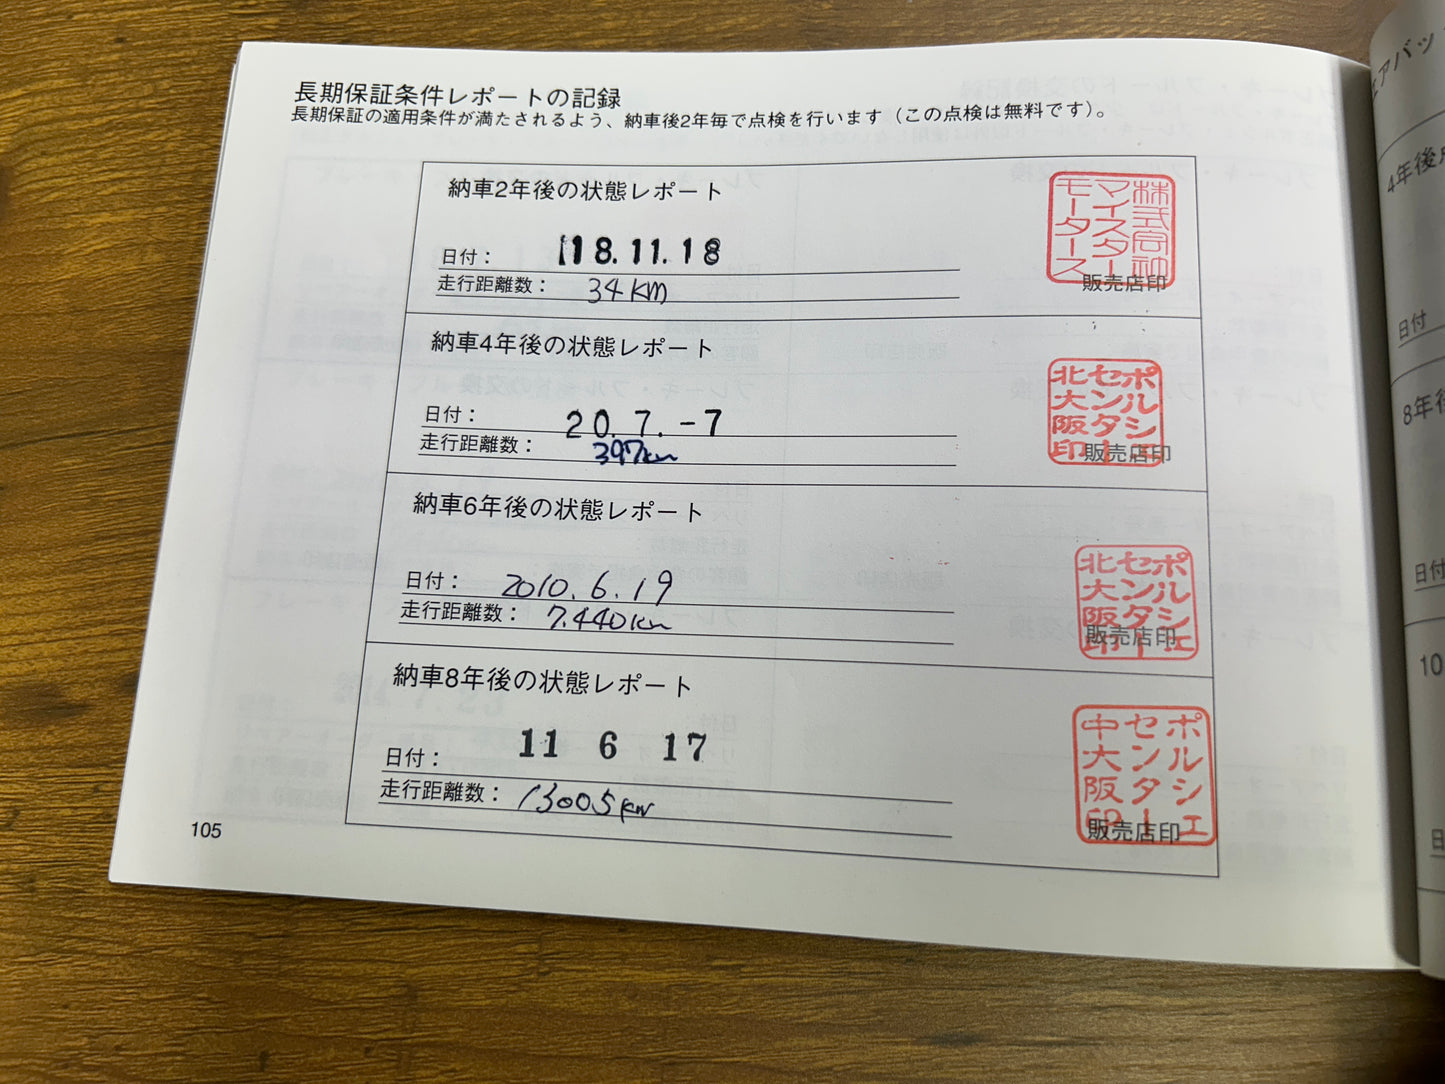 長期保証条件レポートの記録
長期保証の適用条件が満たされるよう、納車後2年毎で点検を行います（この点検は無料です）。
納車2年後の状態レポート
日付： 18.11.18
走行距離数： 34km
株式会社
マイスター
モータース
販売店印
納車4年後の状態レポート
日付： 20.7.-7
走行距離数： 397km
ポルシェ
センター
北大阪印
販売店印
納車6年後の状態レポート
日付： 2010.6.19
走行距離数： 7.440km
ポルシェ
センター
北大阪印
販売店印
納車8年後の状態レポート
日付： 11 6 17
走行距離数： 13005km
ポルシェ
センター
中大阪印
販売店印
105
エアバッ
4年後
日付
8年
日付
10